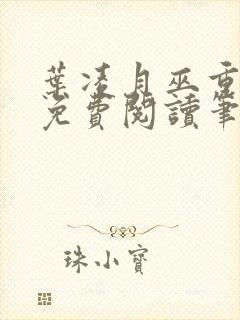 葉凌月巫重
免費閱讀筆
珠小寶